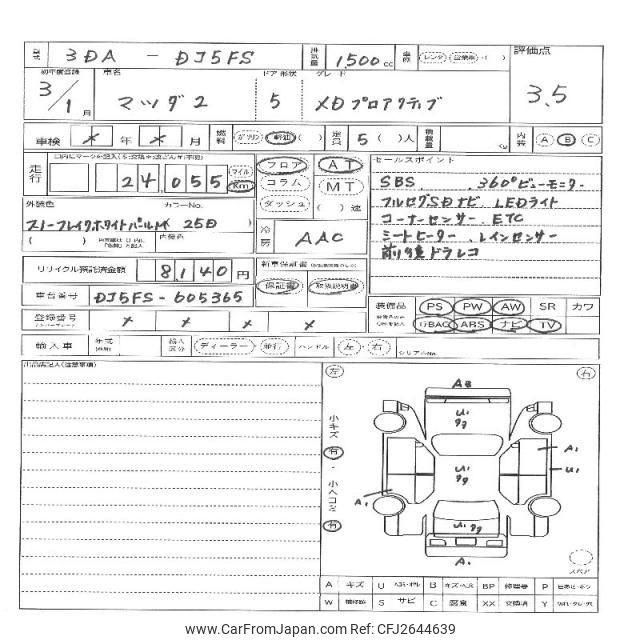 型式 3DA - DJ5FS 排気量 1,500 cc 車歴 レンタ 営業車 ( ) 評価点
初年度登録 車名 ドア 形状 グレード
3/1月 マツダ2 5 XDプロアクティブ 3.5
車検 年 月 燃料 ガソリン 軽油 ( ) 定員 5 ( )人 積載量 kg 内装 A B C
走行 24,055 マイル Km フロア AT セールスポイント
コラム MT SBS. 360°ビューモニター
外装色 カラーNo. ダッシュ ( )速 フルセグSDナビ LEDライト
スノーフレイクホワイトパールM 25D コーナーセンサー ETC
( ) 内装色 冷房 AAC シートヒーター レインセンサー
前後ドラレコ
リサイクル預託済金額 8,140円 新車保証書
保証書 取扱説明書
車台番号 DJ5FS-605365 装備品 PS PW AW SR カワ
登録番号 ABS ナビ TV
輸入車 年式 輸入区分 ディーラー 並行 ハンドル 左・右 シリアルNo.
出品店記入(注意事項) 左 右
小キズ 有・小ヘコミ 有
AB
U1
A1 U1
A1
U1
A1
スペア
A キズ U B BP 修理跡 P
W S サビ C 腐食 XX 交換済 Y
www.CarFromJapan.com - CFJ2644639